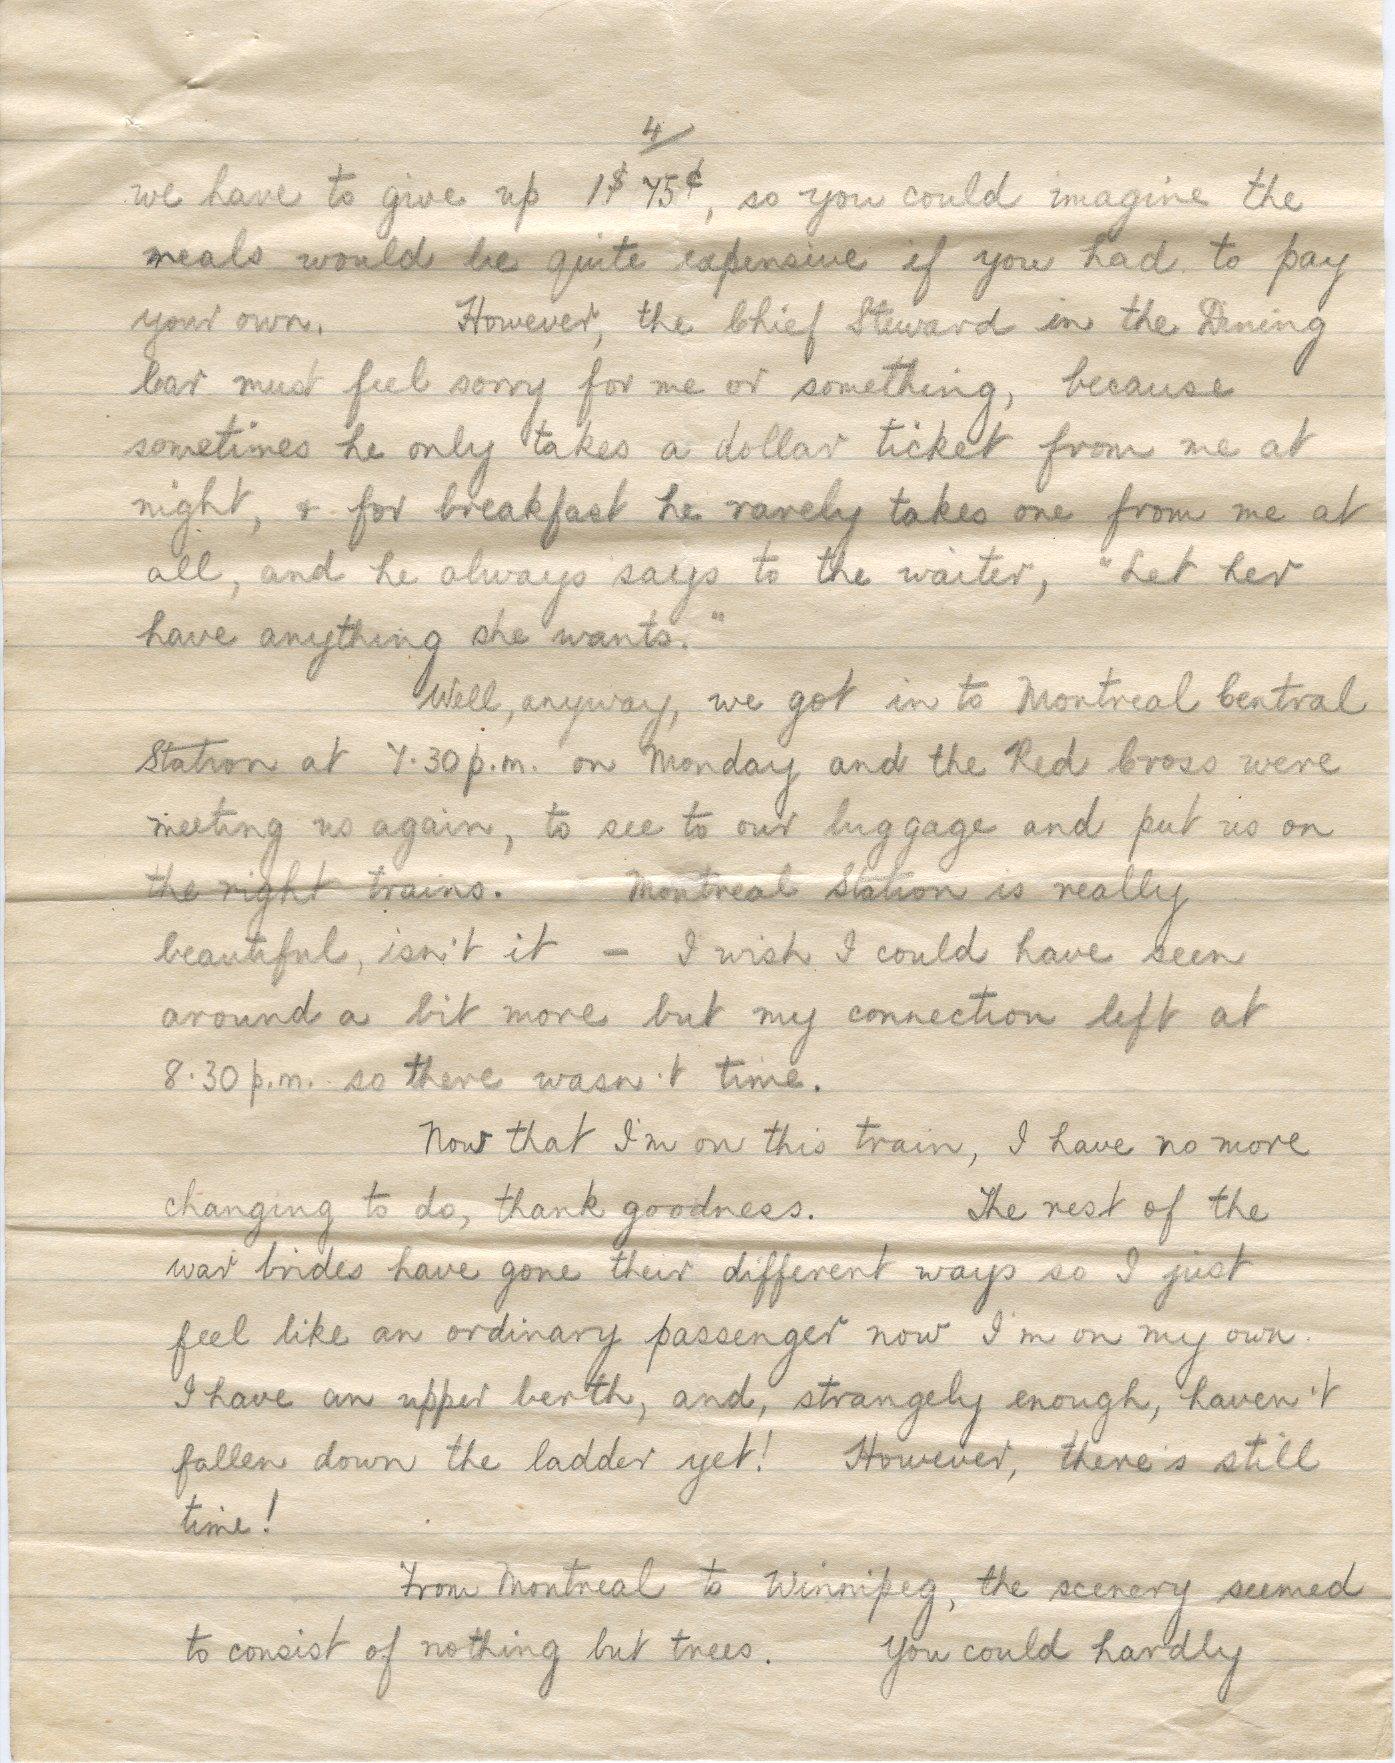 4/
we have to give up 1$ 75¢, so you could imagine the
meals would be quite expensive if you had to pay
your own. However, the Chief Steward in the Dining
Car must feel sorry for me or something, because
sometimes he only takes a dollar ticket from me at
night, & for breakfast he rarely takes one from me at
all, and he always says to the waiter, "Let her
have anything she wants."
Well, anyway, we got in to Montreal Central
Station at 7.30 p.m. on Monday and the Red Cross were
meeting us again, to see to our luggage and put us on
the right trains. Montreal Station is really
beautiful, isn't it — I wish I could have seen
around a bit more but my connection left at
8.30 p.m. so there wasn't time.
Now that I'm on this train, I have no more
changing to do, thank goodness. The rest of the
war brides have gone their different ways so I just
feel like an ordinary passenger now I'm on my own.
I have an upper berth, and, strangely enough, haven't
fallen down the ladder yet! However, there's still
time!
From Montreal to Winnipeg, the scenery seemed
to consist of nothing but trees. You could hardly